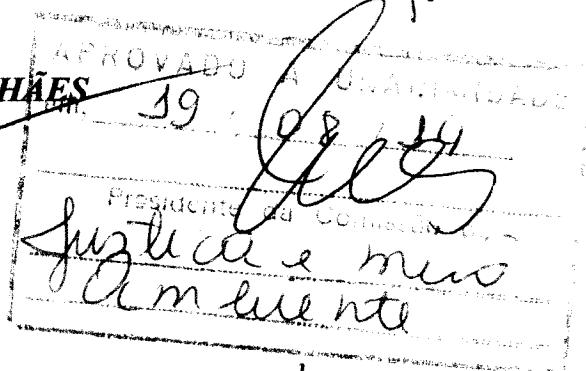 APROVADO A UNANIMIDADE
HÃES
Em, 19 / 08 / 14
Presidente da Comissão de
Justiça e meio
Ambiente